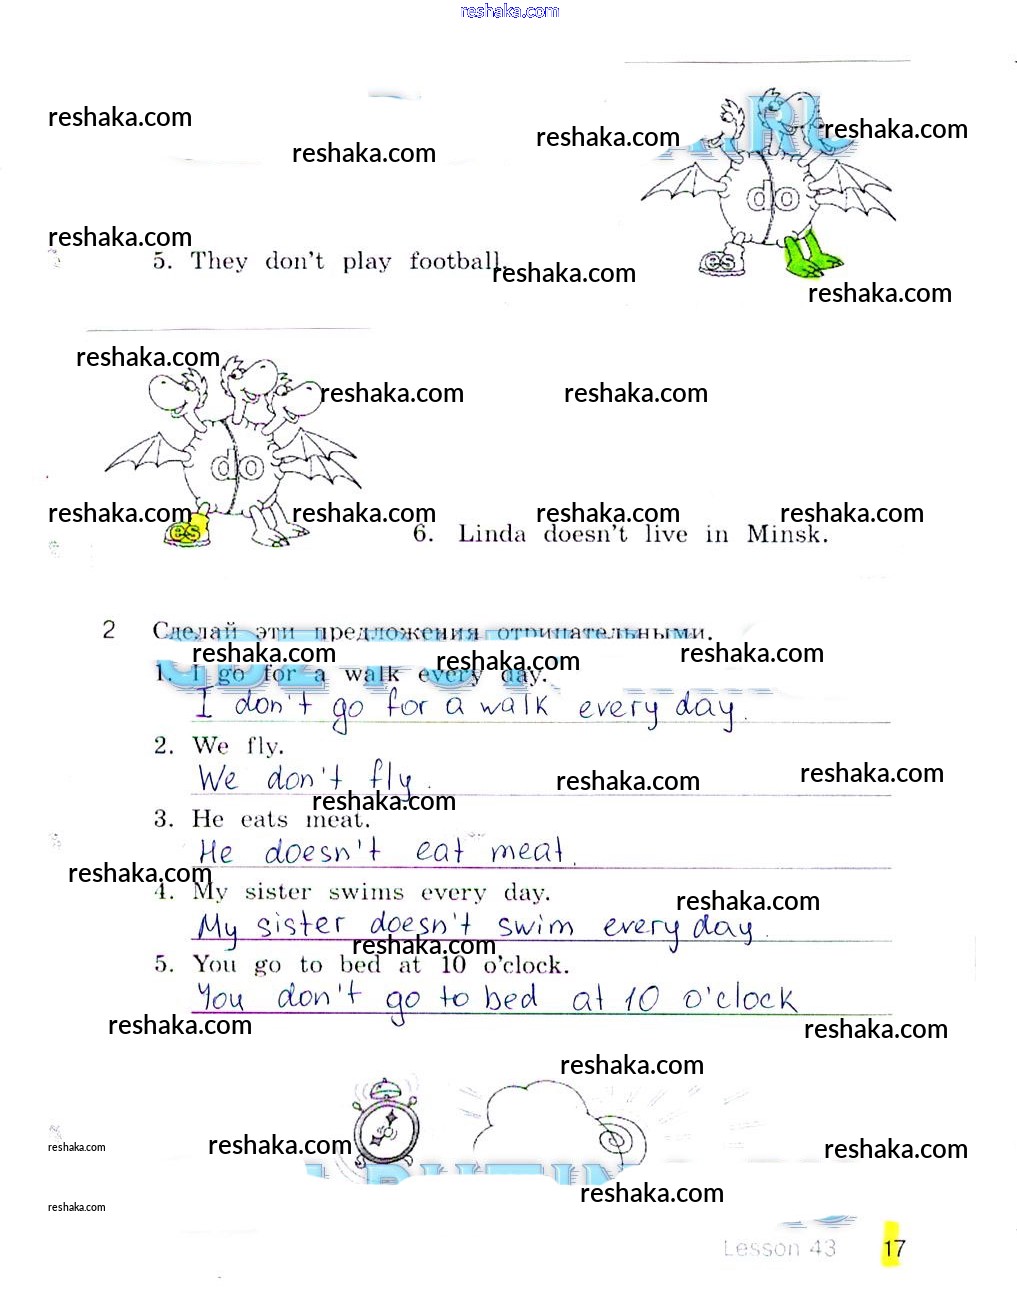 reshaka.com
reshaka.com
reshaka.com
reshaka.com
reshaka.com
do
reshaka.com
es
5. They don't play football.
reshaka.com
reshaka.com
reshaka.com
reshaka.com
reshaka.com
do
reshaka.com
reshaka.com
reshaka.com
reshaka.com
es
6. Linda doesn't live in Minsk.
2 Сделай эти предложения отрицательными.
reshaka.com
reshaka.com
reshaka.com
1. I go for a walk every day.
I don't go for a walk every day.
2. We fly.
We don't fly.
reshaka.com
reshaka.com
reshaka.com
3. He eats meat.
He doesn't eat meat.
reshaka.com
4. My sister swims every day.
reshaka.com
My sister doesn't swim every day.
reshaka.com
5. You go to bed at 10 o'clock.
You don't go to bed at 10 o'clock
reshaka.com
reshaka.com
reshaka.com
reshaka.com
reshaka.com
reshaka.com
reshaka.com
reshaka.com
Lesson 43 17